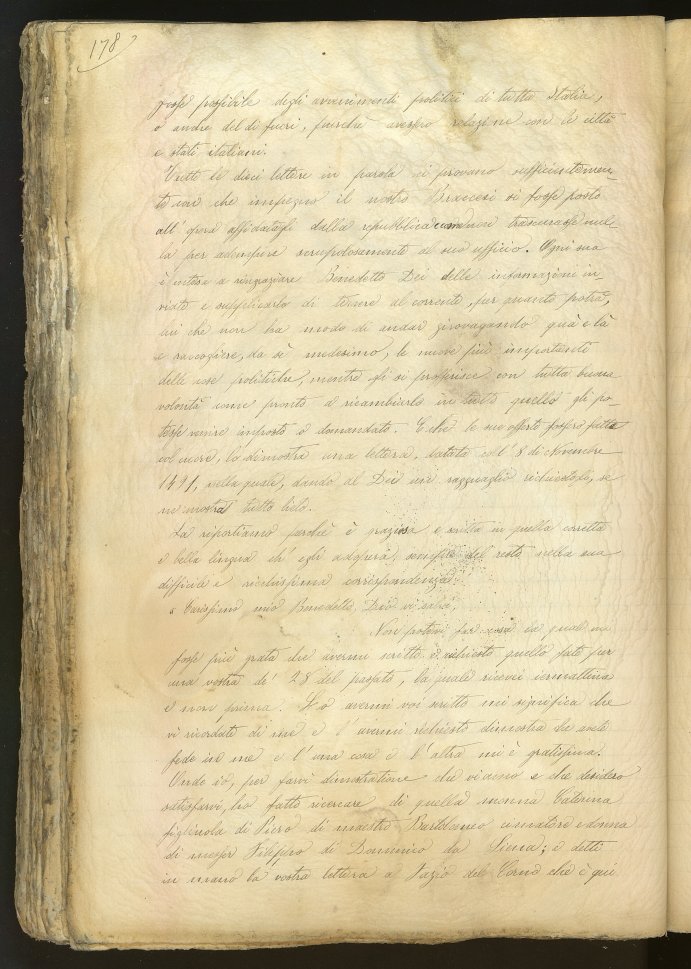 178
fosse possibile degli avvenimenti politici di tutta Italia,
o anche del di fuori, purchè avessero relazione con le città
e stati italiani.
Tutte le dieci lettere in parola ci provano sufficientemen-
te con che impegno il nostro Braccesi si fosse posto
all'opera affidatagli dalla repubblica e come non trascurasse nul-
la per adempiere scrupolosamente al suo ufficio. Ogni sua
è intesa a ringraziare Benedetto Dei delle informazioni in-
viate e supplicarlo di tenere al corrente, per quanto potrà,
lui che non ha modo di andar girovagando quà e là
e raccogliere, da sè medesimo, le nuove più importanti
delle cose politiche, mentre gli si proferisce con tutta buona
volontà come pronto a ricambiarlo in tutto quello gli po-
tesse venire imposto o domandato. E che le sue offerte fossero fatte
col cuore, lo dimostra una lettera, datata coll' 8 di Novembre
1491, nella quale, dando al Dei un ragguaglio richiestogli, se
ne mostra tutto lieto.
La riportiamo perchè è graziosa e scritta in quella corretta
e bella lingua ch' egli adopera sempre del resto nella sua
difficile e ricchissima corrispondenza:
« Carissimo mio Benedetto, Dio vi salvi,
Non potevi far cosa la qual mi
fosse più grata che avermi scritto e richiesto quello fate per
una vostra de' 28 del passato, la quale ricevei iermattina
e non prima. Lo avermi voi scritto mi significa che
vi ricordate di me e l' avermi richiesto dimostra che avete
fede in me e l' una cosa e l' altra mi è gratissima.
Onde io, per farvi dimostratione che vi amo e che desidero
satisfarvi, ho fatto ricercare di quella monna Caterina
figliuola di Piero di maestro Bartolomeo cimatore e donna
di messer Filippo di Domenico da Siena; e detti
in mano la vostra lettera a Nazio del Corno che è qui